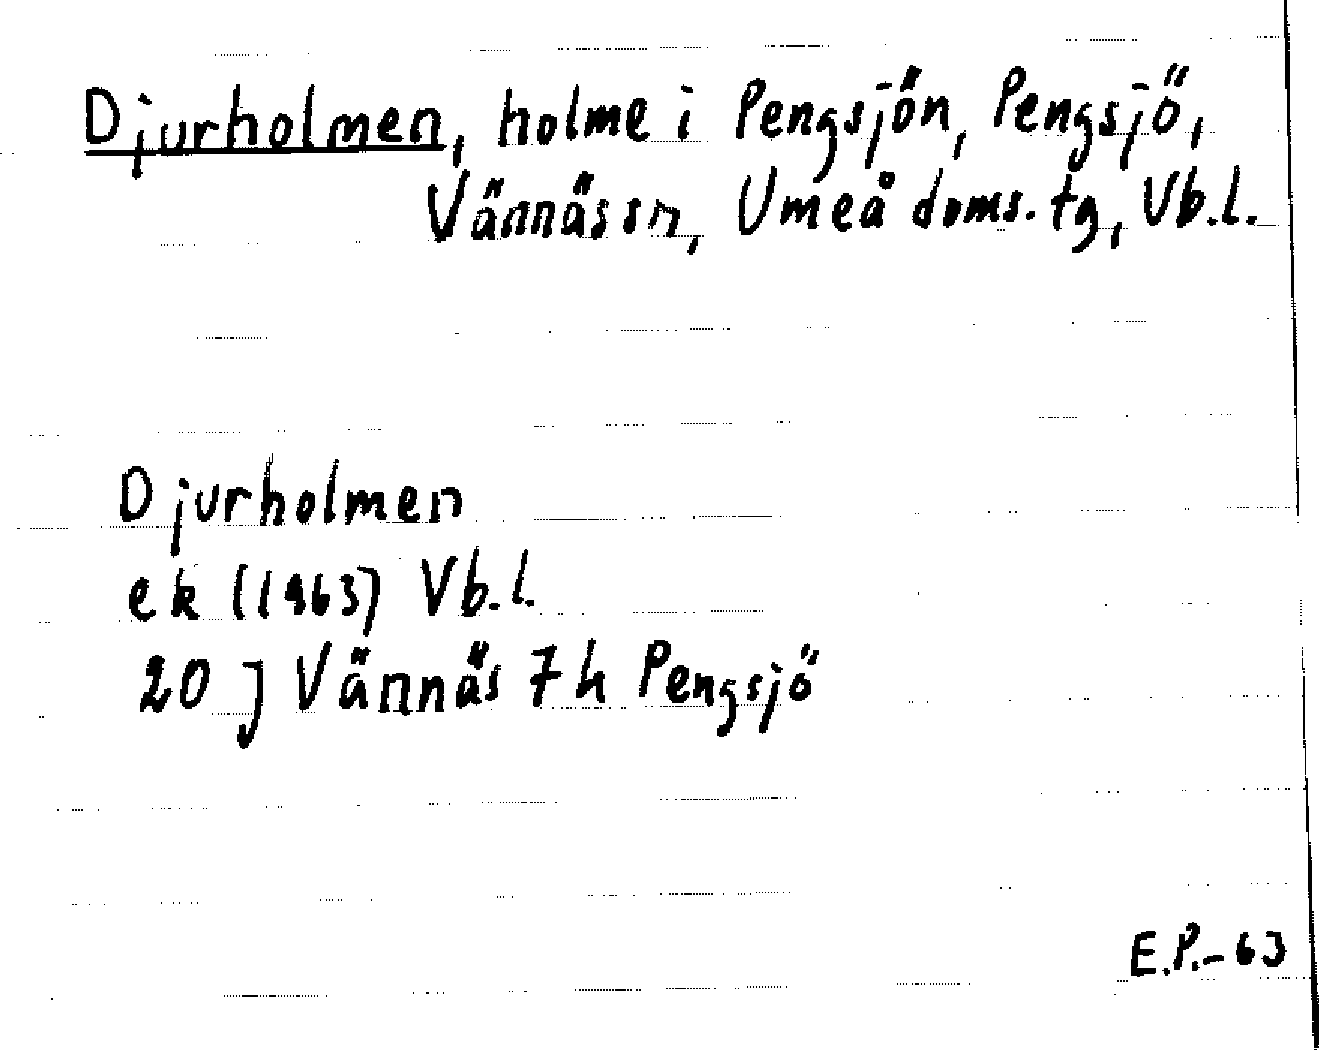 Djurholmen, holme i Pengsjön, Pengsjö,
Vännäs sn, Umeå doms. tg, Vb.l.
Djurholmen
ek (1963) Vb.l.
20 J Vännäs 7 h Pengsjö
E.P.-63